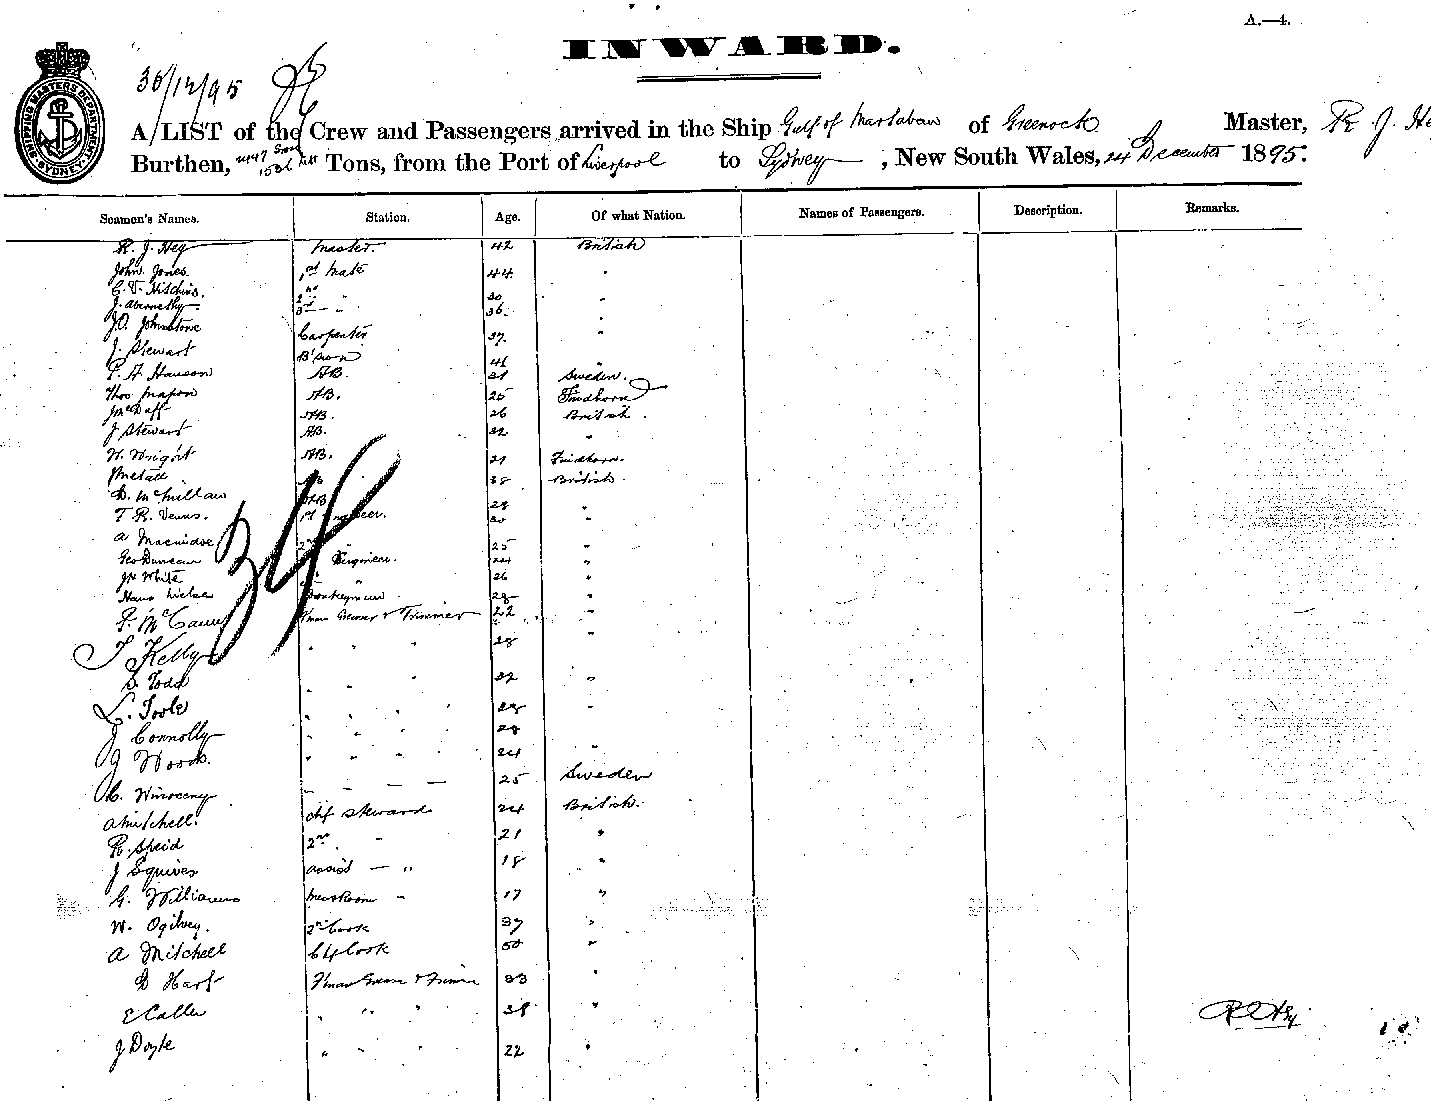 A.—4.
INWARD.
30/12/95
SHIPPING MASTERS DEPARTMENT SYDNEY.
A LIST of the Crew and Passengers arrived in the Ship Gulf of Martaban of Greenock Master, R. J. Hay
Burthen, Tons, from the Port of Liverpool to Sydney, New South Wales, 24 December 1895.
Seamen's Names. Station. Age. Of what Nation. Names of Passengers. Description. Remarks.
R. J. Hay Master. 42 British
John Jones 1st Mate 44 "
C. V. Hitchins. 2nd " 30 "
J. Abernethy 3rd " 36 "
J. O. Johnstone Carpenter 37 "
J. Stewart B'swn 41 "
P. A. Hanson AB. 31 Sweden.
Thos AB. 25 Findhorn
J McDuff AB. 26 British
J Stewart AB. 32 "
W. Wright AB. 21 Findhorn.
38 British
D. McMillan AB 28 "
T. R. Venns. 1st Engineer. 30 "
A 2nd " 25 "
Geo Duncan Engineer. 24 "
Jn White " 26 "
Hans Donkeyman 28 "
P. McCann Fman Greaser & Trimmer 22 "
34
T Kelly " " " 28 "
S. Todd " " " 32 "
L. Toole " " " 28 "
J Connolly " " " 28
G Woods. " " " 24 "
C. 25 Sweden
A Mitchell. chf Steward 24 British.
R. Speid 2nd " 21 "
J Squires assist — " 18 "
G. Williams Messroom " 17 "
W. Ogilvey. 2nd Cook 37 "
A Mitchell Chf Cook 50 "
D Hart Fman Greaser & Trimmer 33 "
E Caller " " " 38 "
J Doyle " " " 22 "